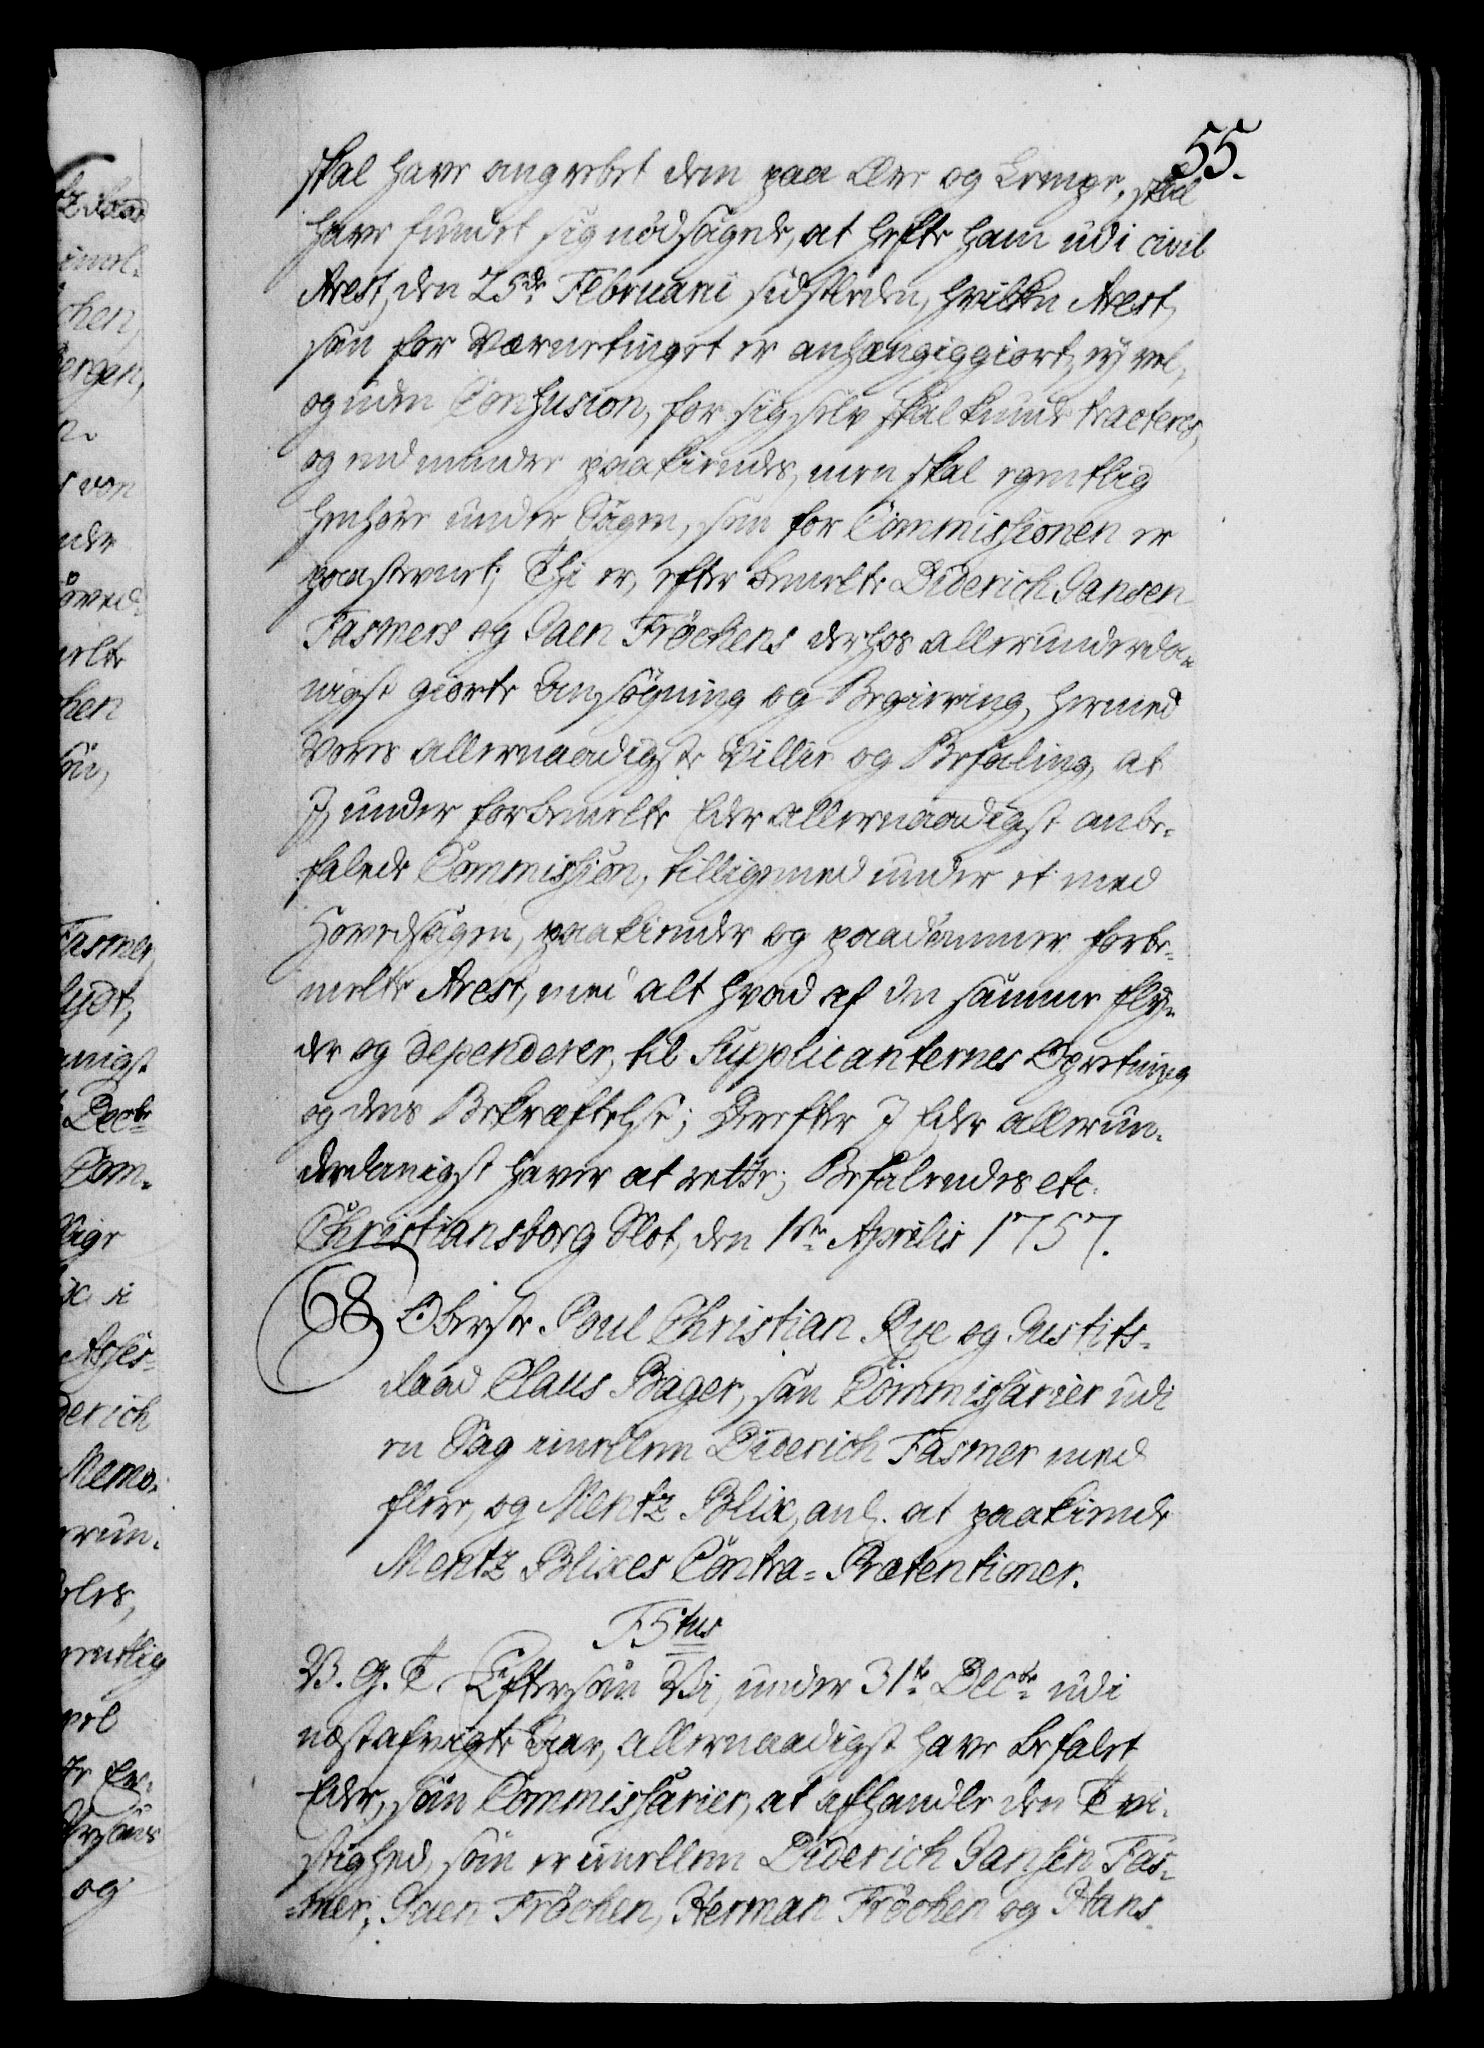 55.
skal have angrebet dem paa Ære og Lempe, skal
have fundet sig nødsagede, at hefte ham udi civil
Arest, den 25de Februarii sidstleden, hvilken Arest,
som for Varnetinget er anhængiggiort, ey vel,
og uden Confusion, for sig selv skal kunde tracteres,
og end mindre paakiendes, men skal egentlig
henhøre under Sagen, som for Commissionen er
paastevnet; Thi er, efter bemelte Diderich Jansen
Fasmers og Jaen Frøchens derhos allerunderda-
nigst giorte Ansøgning og Begiering, hermed
Vores allernaadigste Villie og Befaling, at
I, under forbemelte Eder allernaadigst anbe-
falede Commission, tilligemed under et med
Hovedsagen, paakiender og paadømmer forbe-
melte Arest, med alt hvad af den samme fly-
der og dependerer, til Supplicanternes Opretning,
og dens Bekræftelse; Derefter I Eder allerun-
derdanigst haver at rette; Befalendes etc.
Christiansborg Slot, den 1ste Aprilis 1757.
68 Oberste Poul Christian Rye og Justits-
Raad Claus Bager, som Commissarier udi
en Sag imellem Diderich Fasmer med
flere, og Mentz Blix, anl. at paakiende
Mentz Blixes Contra-Prætentioner.
F 5tus
V. G. T. Eftersom Vi, under 31te Decbr udi
næstafvigte Aar, allernaadigst have befalet
Eder, som Commissarier, at afhandle den Tvi-
stighed, som er imellem Diderich Jansen Fas-
mer, Jaen Frøchen, Herman Frøchen og Hans